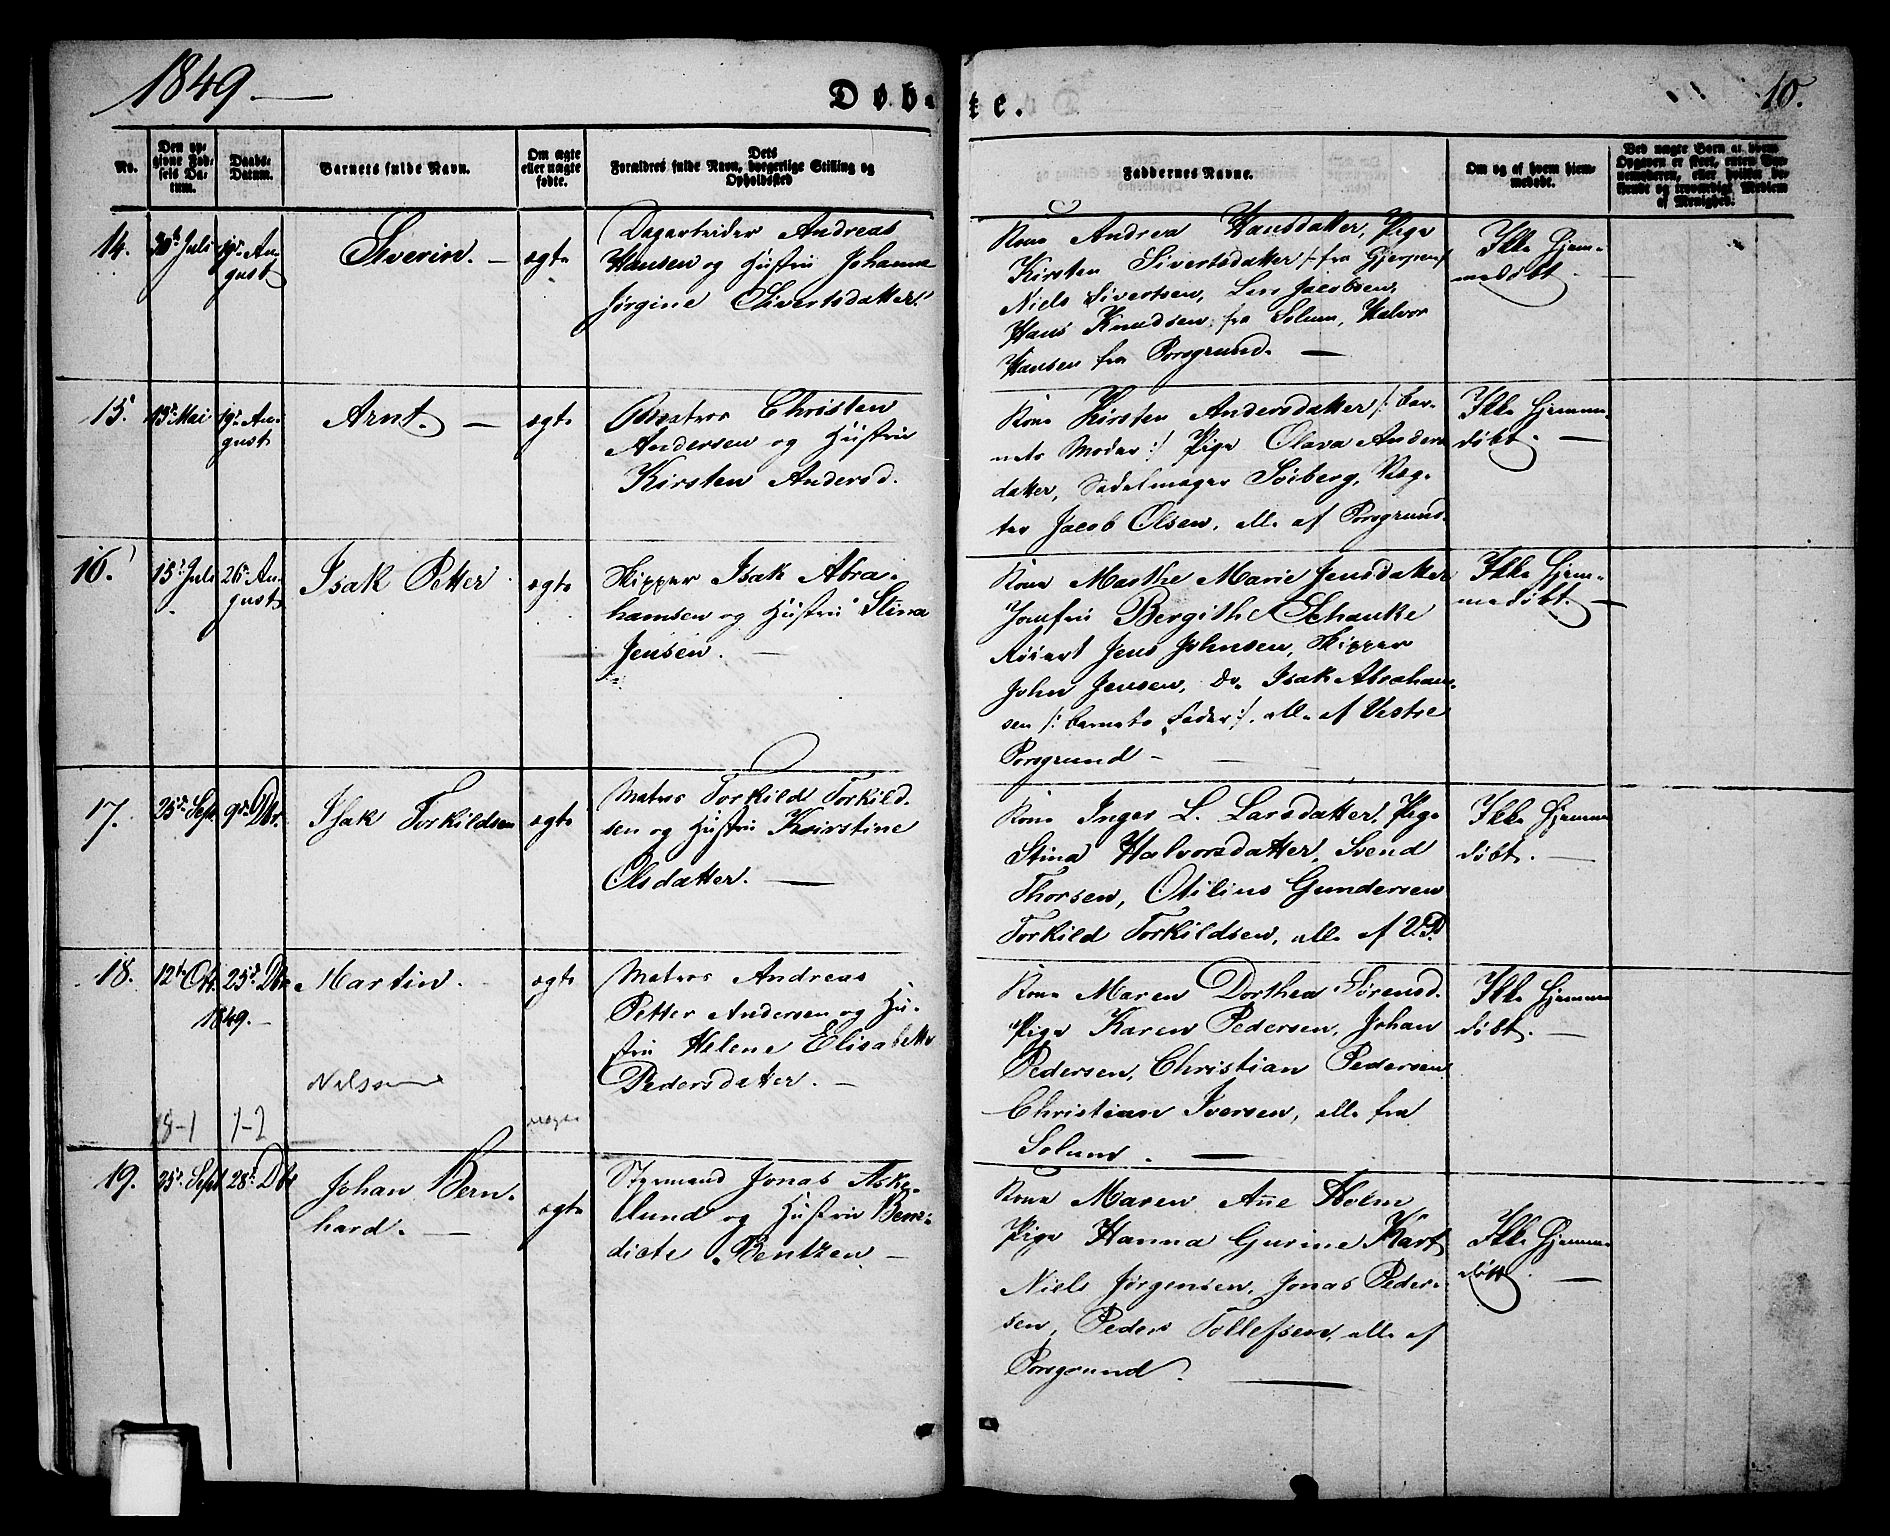 1849.
Døbte.
10.
No.
Den opgivne Fødsels Datum.
Daabs-Datum.
Barnets fulde Navn.
Om ægte eller uægte fødte.
Dets Forældres fulde Navn, borgerlige Stilling og Opholdssted
Faddernes Navne.
Om og af hvem hjemmedøbt.
Ved uægte Børn af hvem Opgaven er skeet, enten Barnemoderen, eller hvilke bekjendt og troværdigt Medlem af Menighed.
14. 30te Juli 19de August Siverin. – ægte
Dagarbeider Andreas
Hansen og Hustru Johanne
Jørgine Sivertsdatter.
Kone Andrea Hansdatter, Pige
Kirsten Sivertsdatter /: fra Gjerpen :/
Niels Sivertsen, Lars Jacobsen,
Hans Knudsen, fra Solum, Halvor
Hansen fra Porsgrund. —
Ikke Hjem-
medøbt. —
15. 13de Mai 19de August Arnt. – ægte
Matros Christen
Andersen og Hustru
Kirsten Andersd.
Kone Kirsten Andersdatter /: Bar-
nets Moder :/ Pige Olava Anders
datter, Sadelmager Söiberg, Væg-
ter Jacob Olsen, alle af Porsgrund.
Ikke Hjemme
døbt. —
16. 15de Juli 26de August Isak Petter ægte
Skipper Isak Abra-
hamsen og Hustru Stina
Jensen. –
Kone Marthe Marie Jensdatter
Jomfru Bergithe Schanke
Jens Johnsen, Skipper
John Jensen, Do. Isak Abraham-
sen /: Barnets Fader :/, alle af Vestre
Porsgrund –
Ikke Hjem-
medøbt. —
17. 25de Sept. 9de Dbr. Isak Torkildsen ægte
Matros Torkild Torkild-
sen og Hustru Kirstine
Olsdatter. —
Kone Inger L. Larsdatter, Pige
Stina Halvorsdatter, Svend
Thorsen, Otilius Gundersen
Torkild Torkildsen, alle af V.P.
Ikke Hjemme
døbt. —
18. 12te Oct. 25de Dbr. 1849. – Martin. ægte
Matros Andreas
Petter Andersen og Hu-
stru Helene Elisabeth
Pedersdatter. –
Kone Maren Dorthea Sörensd.
Pige Karen Pedersen, Johan
Pedersen, Christian Pedersen
Christian Iversen, alle fra
Solum. —
Ikke Hjemme
døbt. —
8-1 1-2
19. 25de Sept 28de Dbr Johan Bern-
hard. — ægte
Styrmand Jonas Aske-
lund og Hustru Bene-
dicte Bentzen. –
Kone Maren Ane Holm
Pige Hanna Gurine Kart
Niels Jørgensen, Jonas Peder-
sen, Peder Tollefsen, alle af
Porsgrund. —
Ikke Hjemme
døbt. —